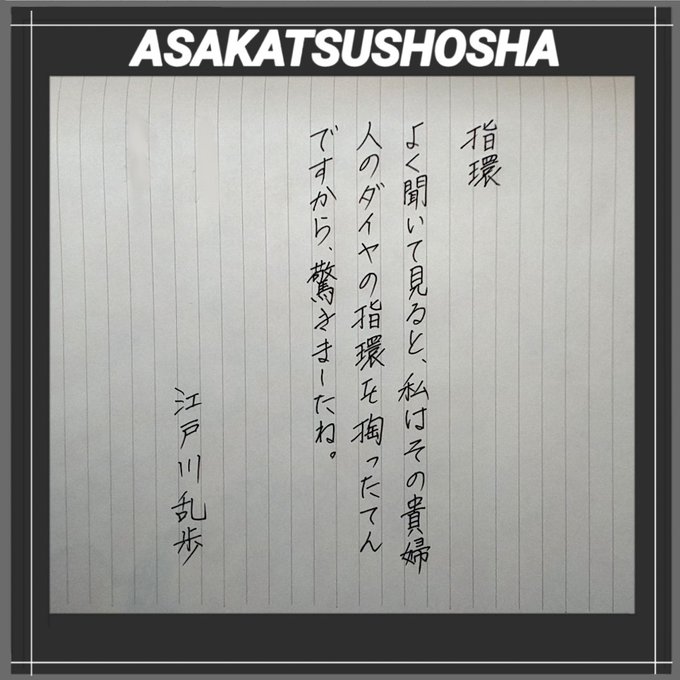 ASAKATSUSHOSHA
指環
よく聞いて見ると、私はその貴婦
人のダイヤの指環を掏ったてん
ですから、驚きましたね。
江戸川乱歩